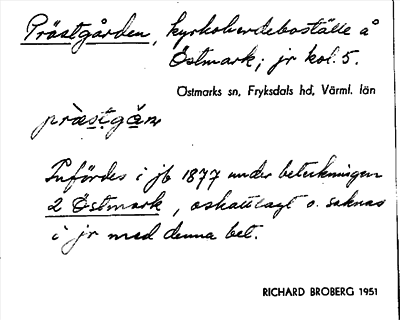 Prästgården, kyrkoherdeboställe å
Östmark; jr kol. 5.
Östmarks sn, Fryksdals hd, Värml. län
præ̀stgǻn
Infördes i jb 1877 under beteckningen
2 Östmark, oskattlagt o. saknas
i jr med denna bet.
RICHARD BROBERG 1951